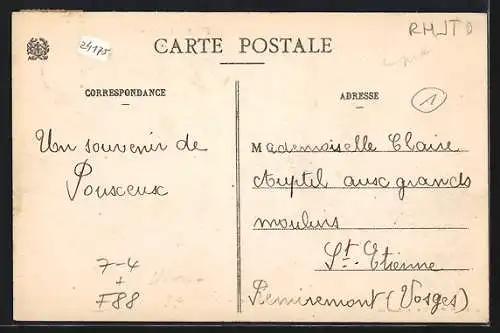 24175
RMJTD
CARTE POSTALE
CORRESPONDANCE
ADRESSE
1
Un souvenir de
Pouxeux
7-4
+
F88
Mademoiselle Claire
aux grands
moulins
St. Etienne
Remiremont (Vosges)